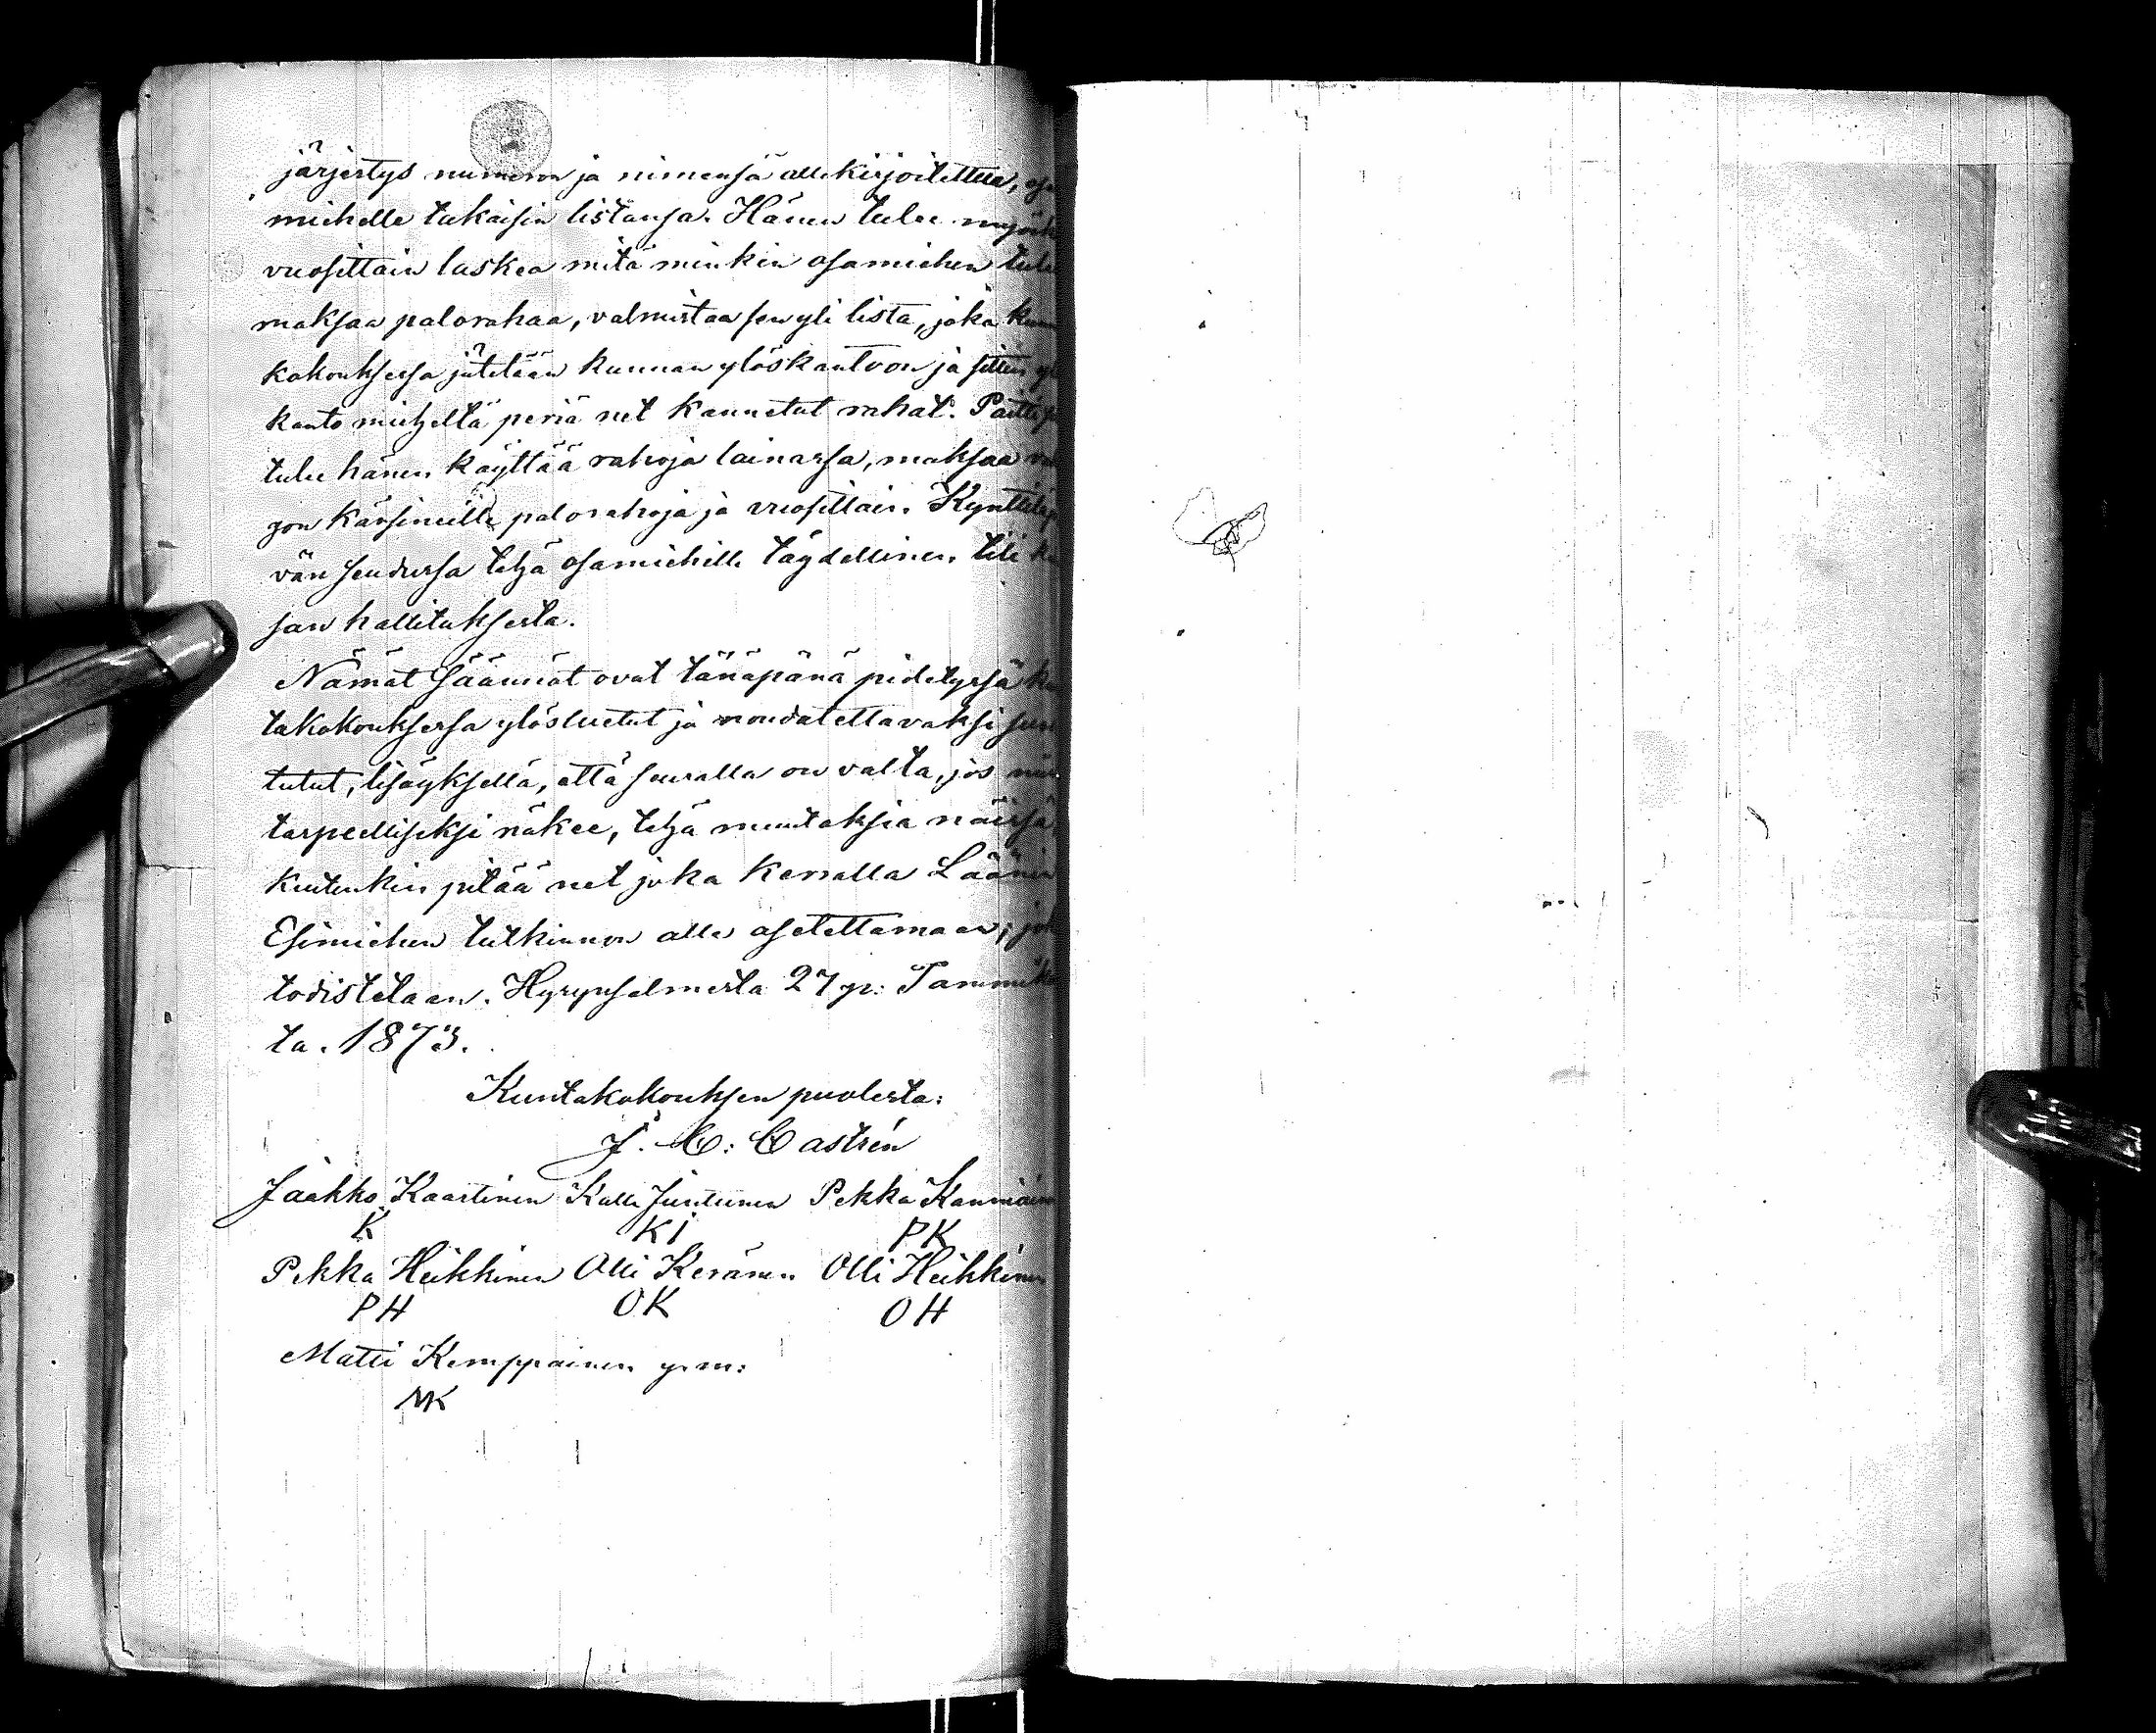 järjestys numeron ja nimensä allekirjoitettua, osa
miehelle takaisin listansa. Hänen tulee myös
vuosittain laskea mitä minkin osamiehen tulee
maksaa palorahaa, valmistaa sen yli lista, joka kun
kokouksessa jätetään kunnan ylöskantoon ja sitten yl
kanto mieheltä periä net kannetut rahat. Paitsi
tulee hänen käyttää rahoja lainassa, maksaa va
gon kärsineille palorahoja ja vuosittain Kynttiläp
vän seudussa tehjä osamiehille täydellinen tili ka
san hallituksesta.
Nämät säännöt ovat tänäpänä pidetyssä ku
takokouksessa ylösluetut ja noudatettavaksi suos
tutut, lisäyksellä, että seuralla on valta, jos niin
tarpeelliseksi näkee, tehjä muutoksia näissä
kuitenkin pitää net joka kerralla Läänin
Esimiehen tutkinnon alle asetettamaan; jok
todistetaan. Hyrynsalmesta 27 p: Tammiku
ta. 1873.
Kuntakokouksen puolesta:
J. C: Castrén
Jaakko Kaartinen Kalle Juntunen Pekka Kanniainen
K KJ PK
Pekka Heikkinen Olli Keränen Olli Heikkinen
PH OK OH
Matti Kemppainen y. m:
MK